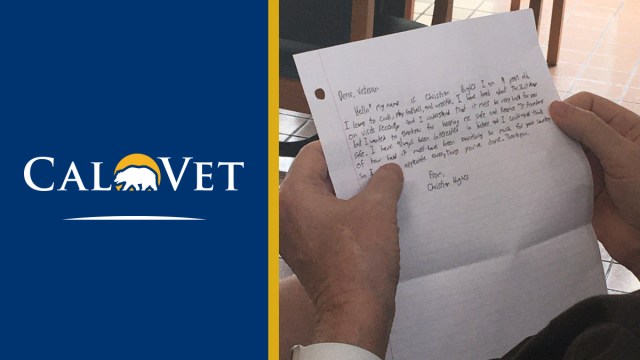 CALVET
Dear, Veteran
Hello! My name is Christian I am 9 years old.
I love to cook, play football, and wrestle, I have heard about the
on visits recently and I understand that it must be very hard for you
but I wanted to thank you for keeping me safe and freedom
safe. I have always been interested in and I could not think
of how hard it must have been so much for your country
So I appreciate everything you've done. Thank you,
From,
Christian